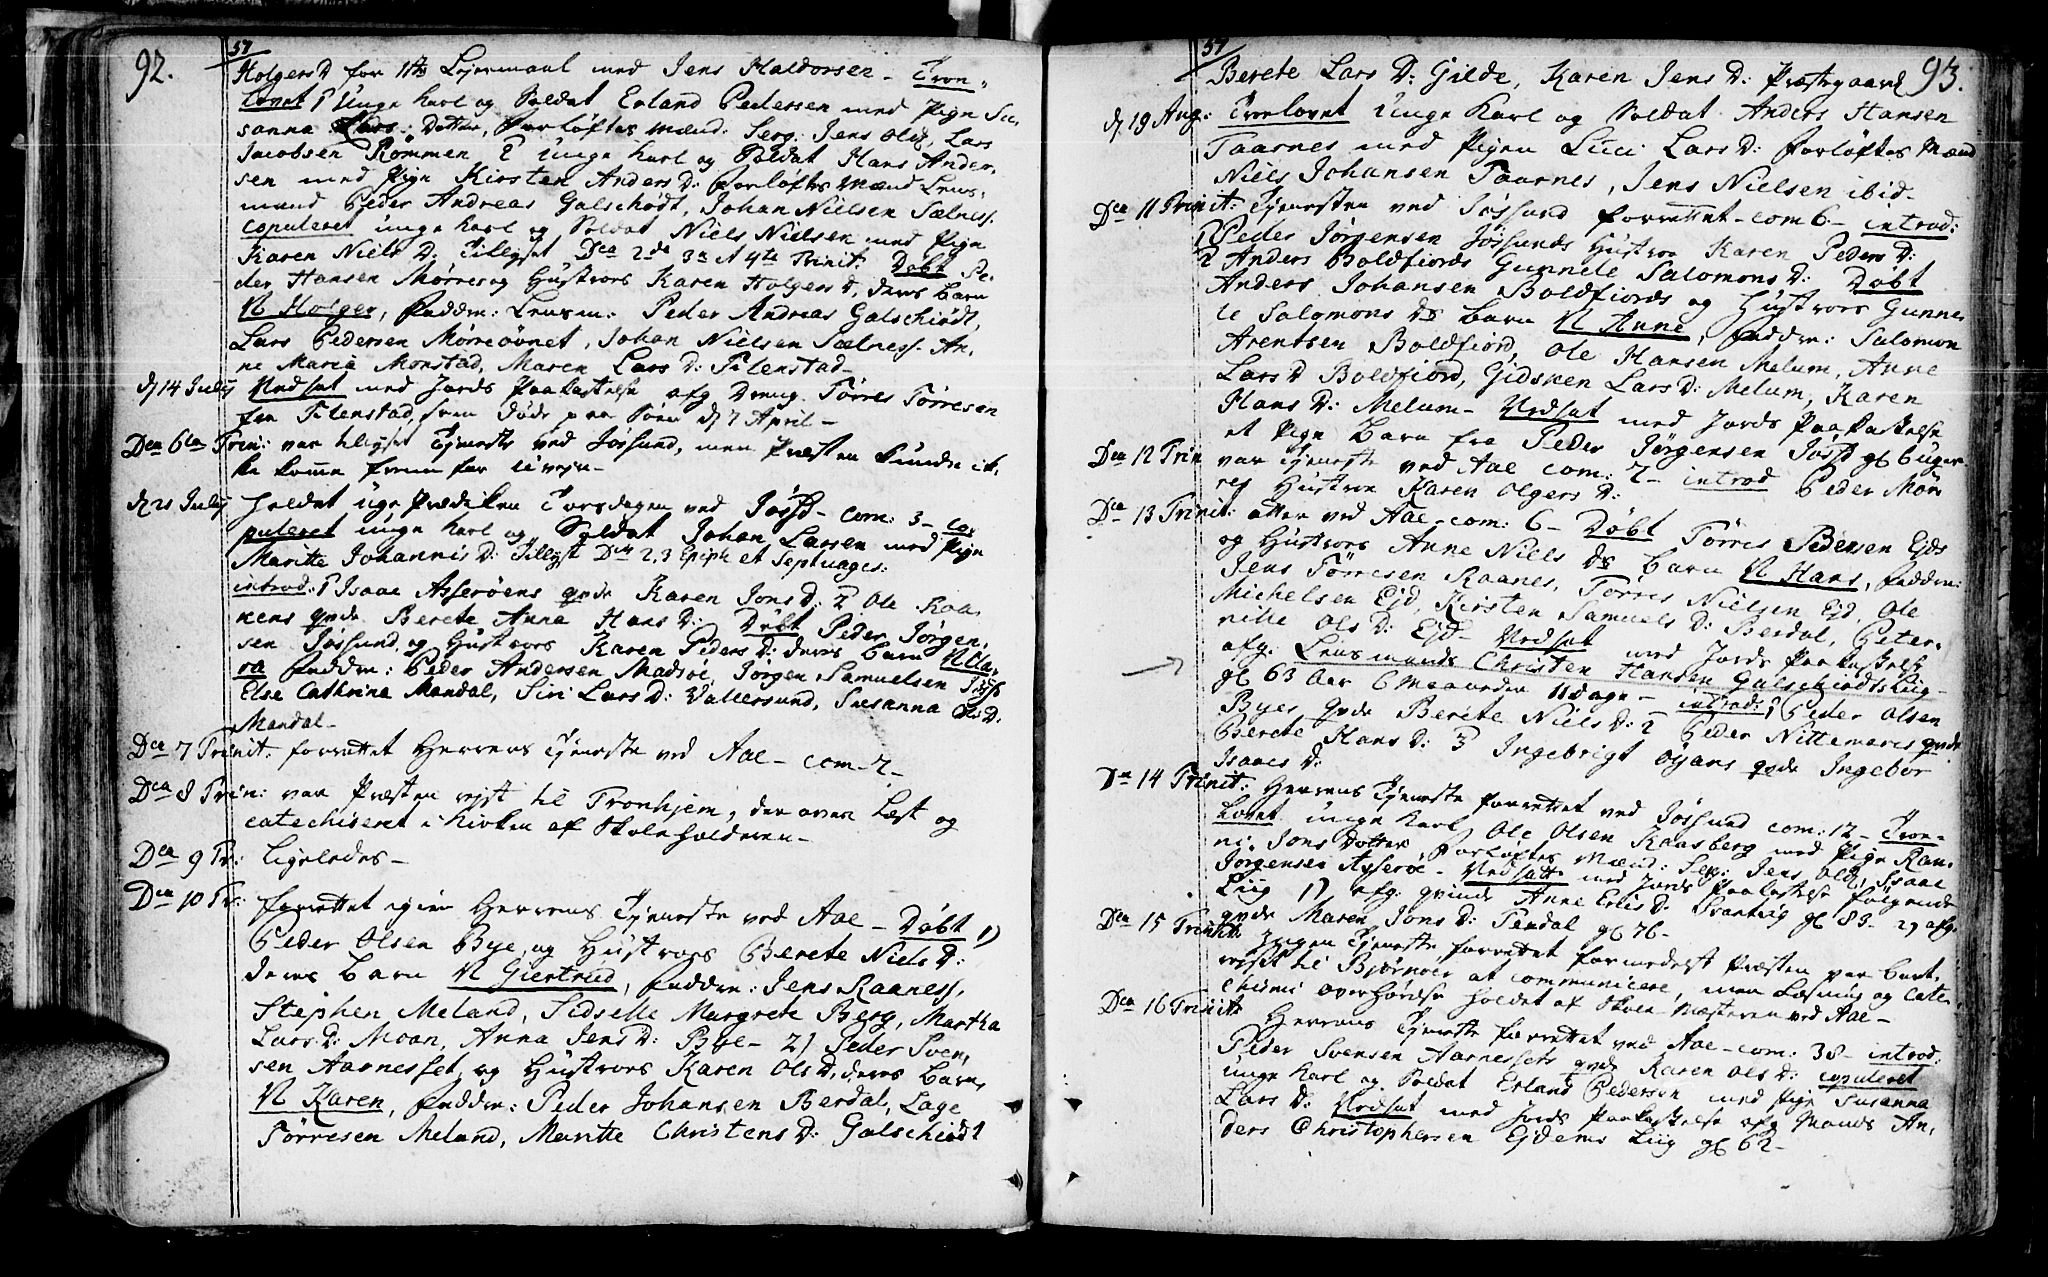 92.
57
Holgers D for 1ste Lejermaal med Jens Haldorsen - Tron-
lovet 1 Unge karl og Soldat Erland Pedersen med Pign Su-
sanna Lars Datter, Forløftes Mænd: Serg: Jens Ols, Lars
Jacobsen Rømmen 2 Unge karl og Soldat Hans Ander-
sen med Pign Kirsten Anders D: Forløftes Mænd Lens-
mand Peder Andreas Galschiødt, Johan Nielsen Sælness.
copuleret unge karl og Soldat Niels Nielsen med Pign
Karen Niels D: Tillyst Dca 2de 3a et 4te Trinit. Døbt Pe-
der Hansen Mørres og Hustroes Karen Holgers D, deres Barn
N Holger, Faddre: Lensm: Peder Andreas Galschiødt,
Lars Pedersen Mørreøvnet, Johan Nielsen Sælness. An-
ne Maria Monstad, Maren Lars D: Tilenstad -
d 14 July Nedsat med Jords Paakastelse afg Dreng Tørres Tørresen
fra Tilenstad, som døde paa Søen d 7 April -
Dca 6ta Trin: var tilsagt Tjeneste ved Jøssund, men Præsten kunde ik-
ke komme frem for uvejr -
d 21 July Holdet uge Prædiken Torsdagen ved Jøssd - com: 3 - co-
puleret unge karl og Soldat Johan Larsen med Pign
Maritte Johannis D: Tillyst Dca 2, 3 Epiph et Septuages:
introd: 1 Isaac Asserøens qvde Karen Jons D: 2 Ole Raa-
nens qvde Berete Anna Hans D: Døbt Peder Jørgen-
sen Jøssund og Hustroes Karen Peders D: deres Barn N Cla-
ra Faddre: Peder Andersen Madsøe, Jørgen Samuelsen Jøssd
Else Cathrina Mandal, Siri Lars D: Vallersund, Susanna Ols D:
Mandal -
Dca 7 Trinit: forrettet Herrens Tjeneste ved Aae - com - 7 -
Dca 8 Trin: var Præsten rejst til Tronhjem, der over Læst og
catechiseret i kirken af Skoleholderen -
Dca 9 Tr: Ligeledes -
Dca 10 Tr: forrettet igien Herrens Tjeneste ved Aae - Døbt 1)
Peder Olsen Bye og Hustroes Berete Niels D:
deres Barn N Giertrud, Faddre: Jens Raaness,
Stephen Meland, Sidselle Margrete Berg, Martha
Lars D: Moan, Anna Jens D: Bye - 2) Peder Sven-
sen Aarnesset og Hustroes Karen Ols D, deres Barn
N Karen, Faddre: Peder Johansen Berdal, Lage
Tørresen Meland, Maritte Christens D: Galschiødt
57
93.
Berete Lars D: Gilde, Karen Jens D: Præstegaard
d 19 Aug: Troelovet Unge Karl og Soldat Anders Hansen
Taarnes med Pigen Luci Lars D: forløftes Mænd
Niels Johansen Taarnes, Jens Nielsen ibid -
Dca 11 Trinit: Tjenesten ved Jøssund forrettet - com 6 - introd:
1 Peder Jørgensen Jøssunds Hustroe Karen Peders D:
2 Anders Boldfiords Gunnele Salomons D: Døbt
Anders Johansen Boldfiords og Hustroes Gunne-
le Salomons Ds Barn N Anne, Faddre: Salomon
Arentsen Boldfiord, Ole Hansen Melum, Anne
Lars D Boldfiord, Gidsken Lars D: Melum, Karen
Hans D: Melum - Nedsat med Jords Paakastelse
et Pige Barn fra Peder Jørgensen Jøssd gl 6 uger
Dca 12 Trin var Tjeneste ved Aae com: 7 - introd Peder Mør-
res Hustroe Karen Olgers D:
Dca 13 Trinit: atter ved Aae - com: 6 - Døbt Tørres Pedersen Ejds
og Hustroes Anne Niels Ds Barn N Hans, Faddre:
Jens Tørresen Raanes, Tørres Nielsen Ejd, Ole
Michelsen Ejd, Kirsten Samuels D: Berdal, Peter-
nille Ols D: Ejd - Nedsat med Jords Paakastelse
afg: Lensmands Christen Hansen Galschiødts Liig -
gl 63 Aar 6 Maaneder 11 dage - introd: 1 Peder Olsen
Byes qvde Berete Niels D: 2 Peder Nittemares qvde
Berete Hans D: 3 Ingebrigt Øyans qvde Ingebor
Isaacs D:
Dca 14 Trinit: Herrens Tjeneste forrettet ved Jøssund com: 12 - Troe-
lovet unge karl Ole Olsen Kaasberg med Pign Ran-
ni Jons Datter, Forløftes Mænd: Serg: Jens Ols, Isaac
Jørgensen Asserøe - Nedsatte med Jords Paakastelse følgende
Liig 1) afg: qvinde Anne Erics D: gl 83 - 2) afg:
qvde Maren Jons D: Tendal gl 76 -
Dca 15 Trinit: Ingen Tjeneste forrettet formedelst Præsten var bort-
rejst til Bjørnøer at communicere, men Læsning og Cate-
chismi overhørelse holdet af Skole-Mesteren ved Aae -
Dca 16 Trinit: Herrens Tjeneste forrettet ved Aae - com: 38 - introd:
Peder Svensen Aarnessets qvde Karen Ols D: copuleret
unge karl og Soldat Erland Pedersen med Pign Susanna
Lars D: Nedsat med Jords Paakastelse afg Mands An-
ders Christophersen Ejdems Liig gl 62 -